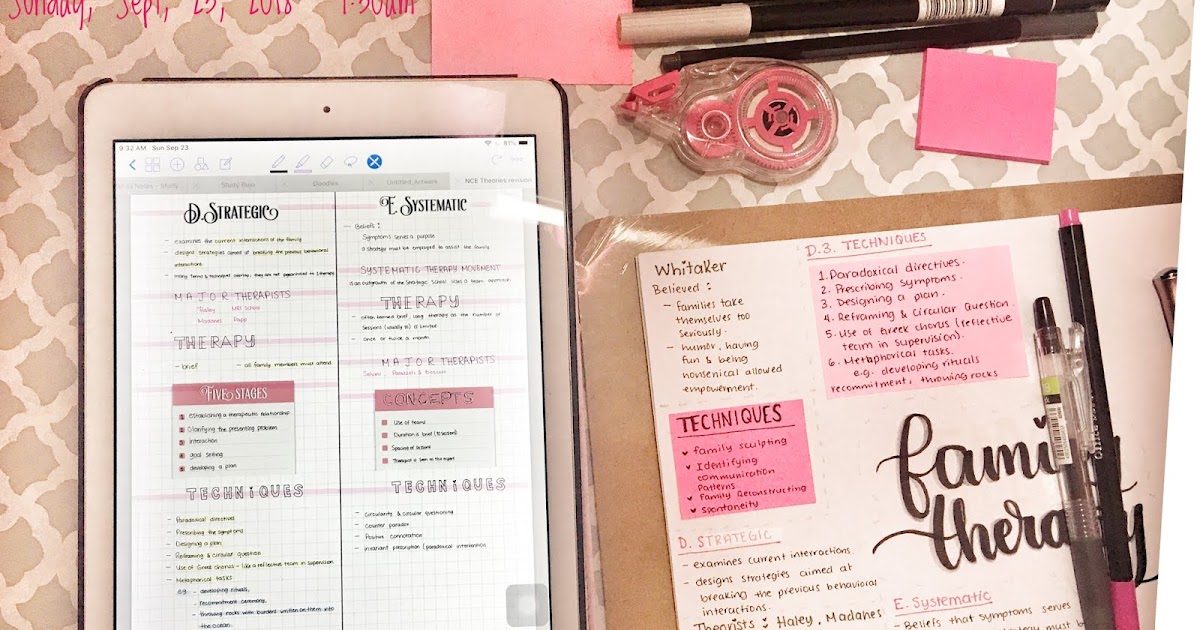 Sunday, Sept, 23, 2018 9:30am
9:32 AM Sun Sep 23
81%
Study Bujo
Doodles
Untitled_Artwork
NCE Theories revision
D. Strategic
- examines the current interactions of the family
- designs strategies aimed at breaking the previous behavioral
interactions
MAJOR THERAPISTS
Haley
Madanes Papp
THERAPY
- brief - all family members must attend
Five Stages
1 Establishing a therapeutic relationship
2 Clarifying the presenting problem
3 interaction
4 goal setting
5 developing a plan
TECHNIQUES
- Paradoxical directives
- Prescribing the symptoms
- Designing a plan
- Reframing & circular question
- Use of Greek chorus - like a reflective team in supervision
- Metaphorical tasks
eg. - developing rituals,
- recommitment ceremony,
- throwing rocks with burdens written on them into
the ocean
E Systematic
- Beliefs :
Symptoms serves a purpose
a strategy must be employed to assist the family
SYSTEMATIC THERAPY MOVEMENT
is an outgrowth of the Strategic School
THERAPY
- often termed brief, long therapy as the number of
sessions (usually 10) is limited
- once or twice a month
MAJOR THERAPISTS
CONCEPTS
Use of teams
Duration is brief (10 sessions)
Spacing of sessions
Therapist is seen as the expert
TECHNIQUES
- circularity & circular questioning
- Counter paradox
- Positive connotation
- invariant prescription (paradoxical intervention
Whitaker
Believed :
- families take
themselves too
seriously.
- humor, having
fun & being
nonsenical allowed
empowerment.
TECHNIQUES
family sculpting
Identifying
communication
Patterns
Family Reconstructing
spontaneity
D. STRATEGIC
- examines current interractions.
- designs strategies aimed at
breaking the previous behavioral
interactions.
Theorists : Haley, Madanes
D.3. TECHNIQUES
1. Paradoxical directives.
2. Prescribing symptoms.
3. Designing a plan.
4. Reframing & Circular Question.
5. Use of Greek chorus (reflective
team in supervision).
6. Metaphorical tasks.
e.g. developing rituals
recommitment, throwing rocks
family
therapy
E. Systematic
- Beliefs that symptoms serves
must be